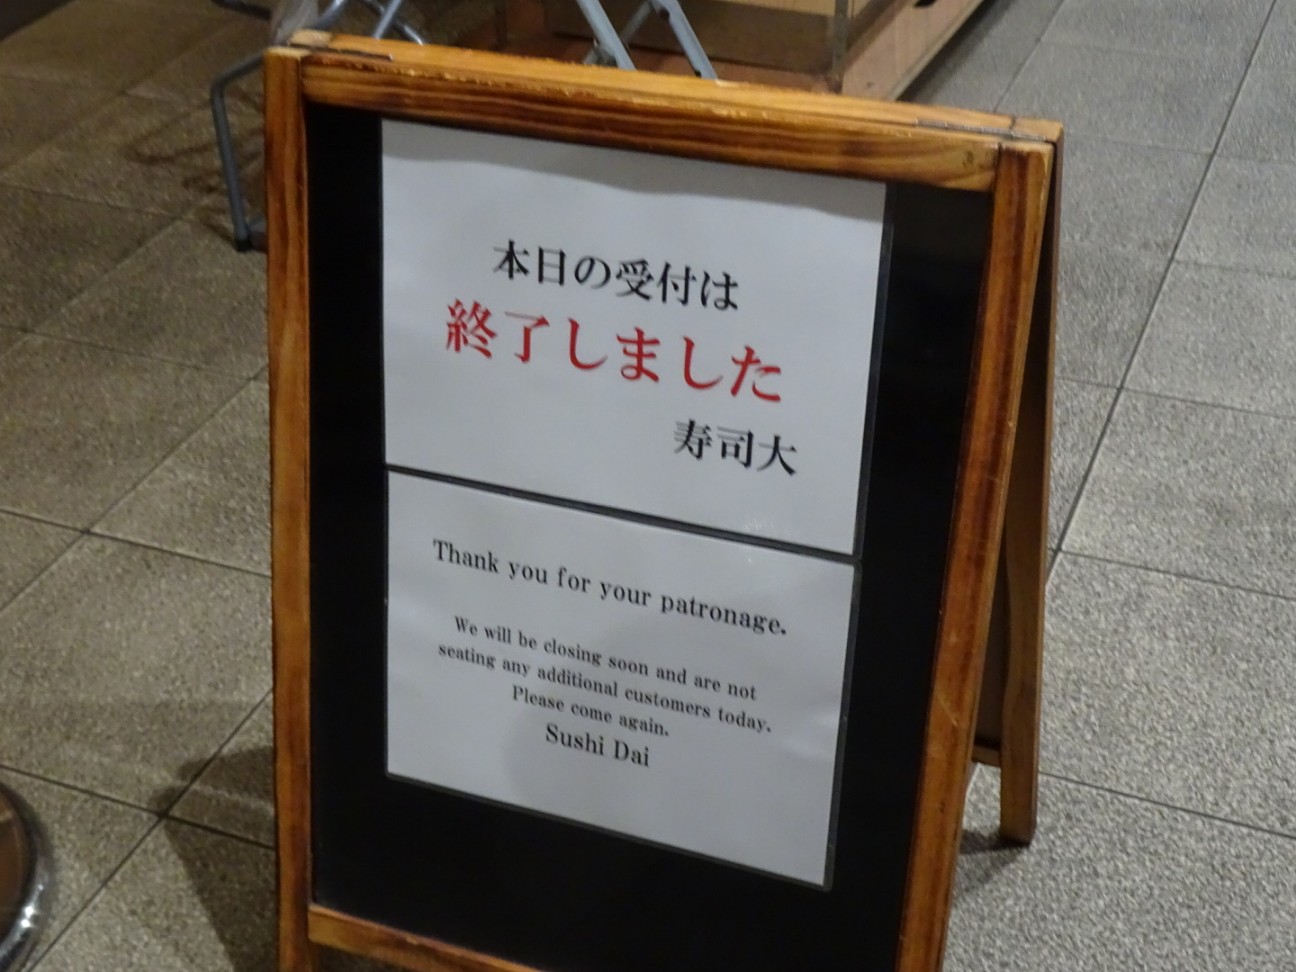 本日の受付は
終了しました
寿司大
Thank you for your patronage.
We will be closing soon and are not
seating any additional customers today.
Please come again.
Sushi Dai